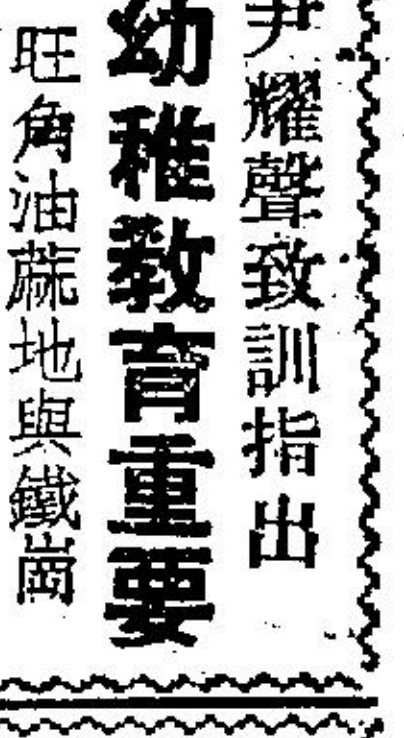 尹耀聲致訓指出
幼稚教育重要
旺角油蔴地與鐵崗